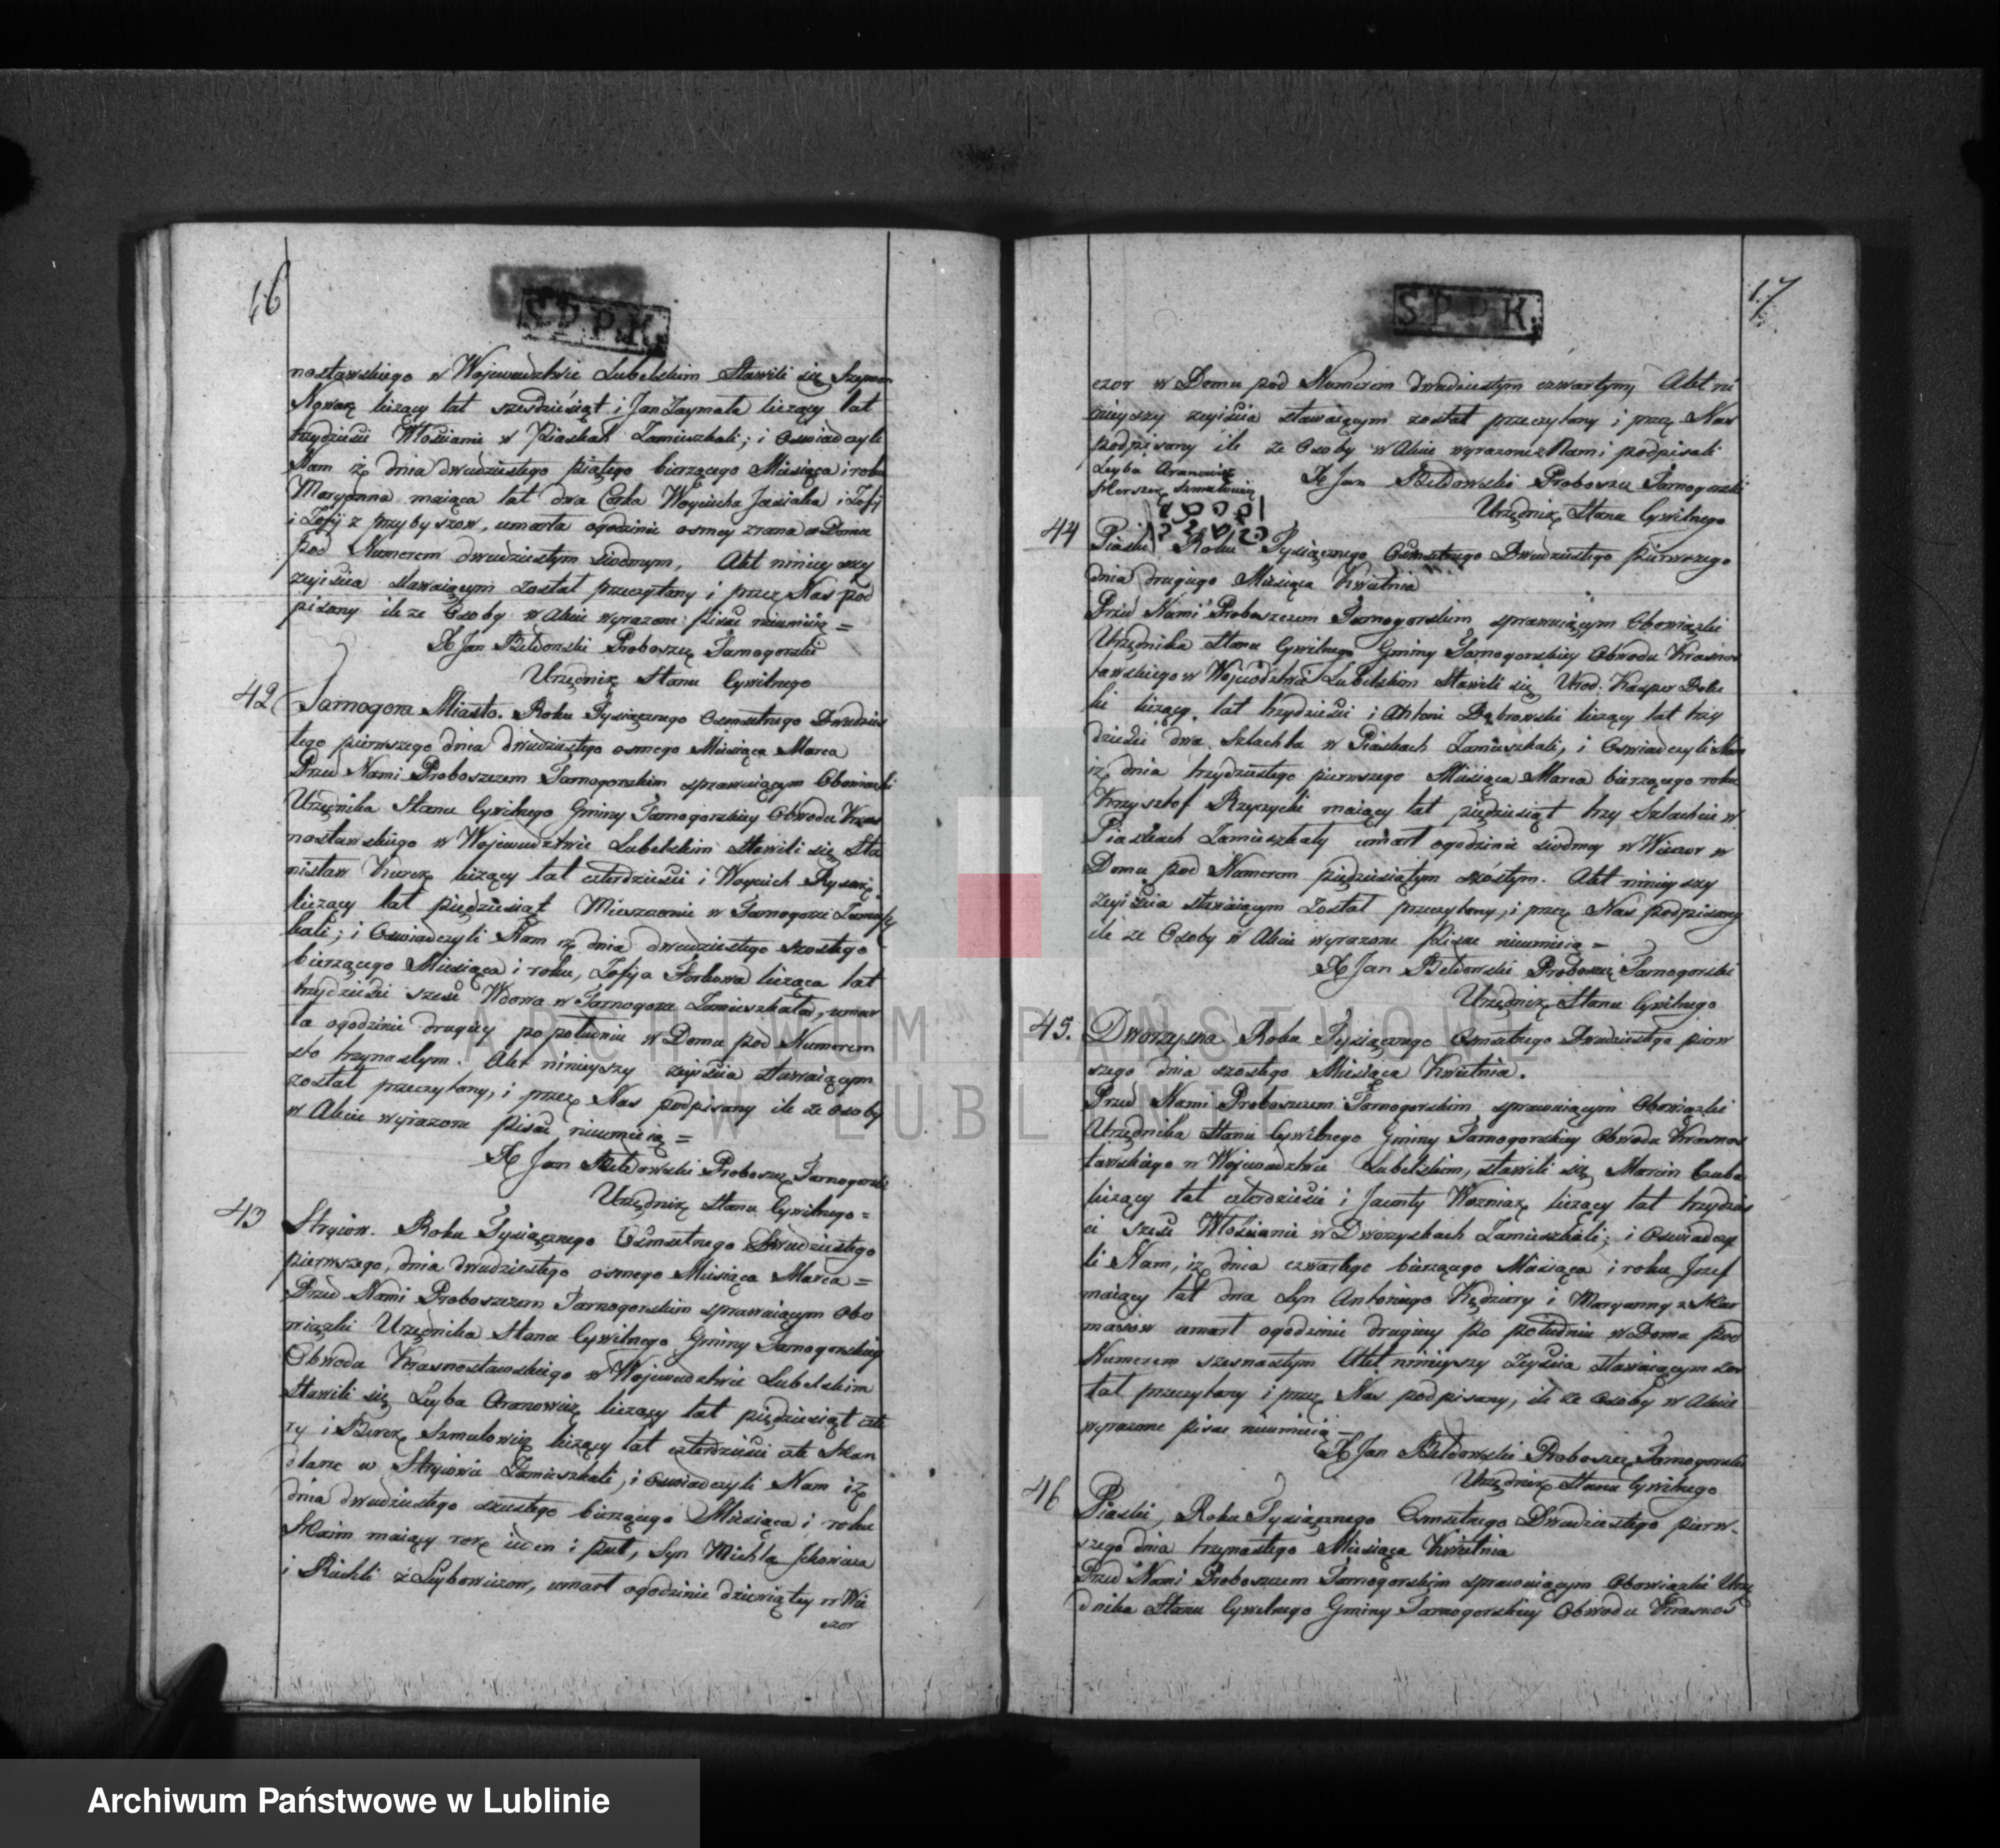 16
S.P.P.K.
nostawskiego w Wojewudztwie Lubelskim Stawili się Szymon
Nowak liczący lat szesdziesiąt i Jan Zaymała liczący lat
trzydziesci Włoscianie w Piaskah Zamieszkali; i Oswiadczyli
Nam iż dnia dwudziestego piątego bierzącego Miesiąca i roku
Maryanna maiąca lat dwa Corka Woyciecha i Zofij
i Zofij z Przybyszow, umarła ogodzinie osmey zrana w Domu
pod Numerem dwudziestym siodmym, Akt ninieyszy
zeyiscia stawaiącym został przeczytany i przez Nas pod
pisany ile ze Osoby w Akcie wyrazone pisac nieumieią =
X Jan Bełdowski Proboszcz Tarnogorski
Urzędnik Stanu Cywilnego
42 Tarnogora Miasto. Roku Tysiącznego Osmsetnego Dwudzies
tego pierwszego dnia dwudziestego osmego Miesiąca Marca
Przed Nami Proboszczem Tarnogorskim sprawuiącym Obowiązki
Urzędnika Stanu Cywilnego Gminy Tarnogorskiey Obwodu Kras
nostawskiego w Wojewudztwie Lubelskim Stawili się Sta
nisław Kurek liczący lat czterdziesci i Woyciech Rysak
liczący lat piędziesiąt Mieszczanie w Tarnogorze Zamiesz
kali; i Oswiadczyli Nam iż dnia dwudziestego szostego
bierzącego Miesiąca i roku, Zofija licząca lat
trzydziesci szesc Wdowa w Tarnogorze Zamieszkała, umar
ła ogodzinie drugiey po południu w Domu pod Numerem
sto trzynastym. Akt ninieyszy zeyiscia stawaiącym
został przeczytany, i przez Nas podpisany ile ze osoby
w Akcie wyrazone pisac nieumieią =
X Jan Bełdowski Proboszcz Tarnogorski
Urzędnik Stanu Cywilnego =
43 Stryiow. Roku Tysiącznego Osmsetnego Dwudziestego
pierwszego, dnia dwudziestego osmego Miesiąca Marca =
Przed Nami Proboszczem Tarnogorskim sprawuiącym Obo
wiązki Urzędnika Stanu Cywilnego Gminy Tarnogorskiey
Obwodu Krasnostawskiego w Wojewudztwie Lubelskim
Stawili się Leyba Aranowicz liczący lat piędziesiąt czte
ry i Szmulowicz liczący lat czterdziesci czte Han
dlarze w Stryiowie Zamieszkali, i Oswiadczyli Nam iż
dnia dwudziestego szustego bierzącego Miesiąca i roku
Haim maiący rok ieden i puł, Syn Michla Ickowicza
i Ruchli z Leybowiczow, umart ogodzinie dziewiątey w Wie
czor
17
S.P.P.K.
czor w Domu pod Numerem dwudziestym czwartym, Akt ni
nieyszy zeyiscia stawaiącym został przeczytany i przez Nas
podpisany ile ze Osoby w Akcie wyrazone z Nami podpisali
Leyba Aranowicz X Jan Bełdowski Proboszcz Tarnogorski
Herszek Szmulowicz
Urzędnik Stanu Cywilnego
44 Piaski Roku Tysiącznego Osmsetnego Dwudziestego pierwszego
dnia drugiego Miesiąca Kwietnia
Przed Nami Proboszczem Tarnogorskim sprawuiącym Obowiązki
Urzędnika Stanu Cywilnego Gminy Tarnogorskiey Obwodu Krasnos
tawskiego w Wojewodztwie Lubelskim Stawili się Urod: Kasper
ki liczący lat trzydziesci i Antoni Dąbrowski liczący lat trzy
dziesci dwa Szlachta w Piaskach Zamieszkali, i Oswiadczyli Nam
iż dnia trzydziestego pierwszego Miesiąca Marca bierzącego roku
Krzysztof Rzyczycki maiący lat piędziesiąt trzy Szlachcic w
Piaskach Zamieszkały umart ogodzinie siodmey w Wieczor w
Domu pod Numerem piędziesiątym szostym. Akt ninieyszy
zeyiscia stawaiącym został przeczytany, i przez Nas podpisany
ile ze Osoby w Akcie wyrazone pisac nieumieią =
X Jan Bełdowski Proboszcz Tarnogorski
Urzędnik Stanu Cywilnego
45. Dworzyska Roku Tysiącznego Osmsetnego Dwudziestego pierw
szego dnia szostego Miesiąca Kwietnia.
Przed Nami Proboszczem Tarnogorskim sprawuiącym Obowiązki
Urzędnika Stanu Cywilnego Gminy Tarnogorskiey Obwodu Krasnos
tawskiego w Wojewudztwie Lubelskim, stawili się Marcin Czuba
liczący lat czterdziesci i Jacenty Wozniak liczący lat trzydzies
ci szesc Włoscianie w Dworzyskach Zamieszkali; i Oswiadczy
li Nam, iż dnia czwartego bierzącego Miesiąca i roku Jozef
maiący lat dwa Syn Antoniego Kędziery i Maryanny z Kar
masow umart ogodzinie drugiey po południu w Domu pod
Numerem szesnastym Akt ninieyszy Zeyscia stawaiącym zos
tał przeczytany i przez Nas podpisany, ile ze osoby w Akcie
wyrazone pisac nieumieią
X Jan Bełdowski Proboszcz Tarnogorski
Urzędnik Stanu Cywilnego
46 Piaski, Roku Tysiącznego Osmsetnego Dwudziestego pierw-
szego dnia trzynastego Miesiąca Kwietnia
Przed Nami Proboszczem Tarnogorskim sprawuiącym Obowiązki Urzę
dnika Stanu Cywilnego Gminy Tarnogorskiey Obwodu Krasnos
ARCHIWUM PAŃSTWOWE
W LUBLINIE
Archiwum Państwowe w Lublinie